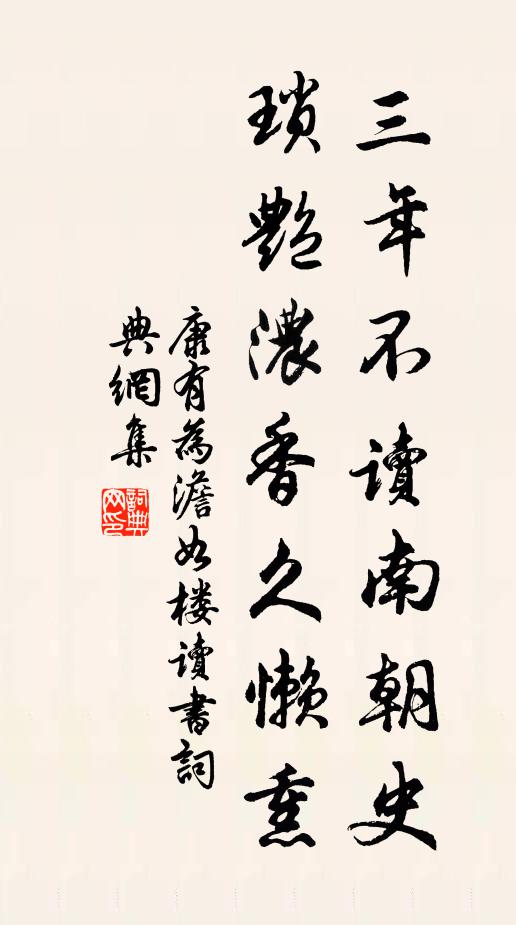 三年不讀南朝史
瑣艷濃香久懶熏
康有為澹如楼讀書詞
典網集
詞典网印